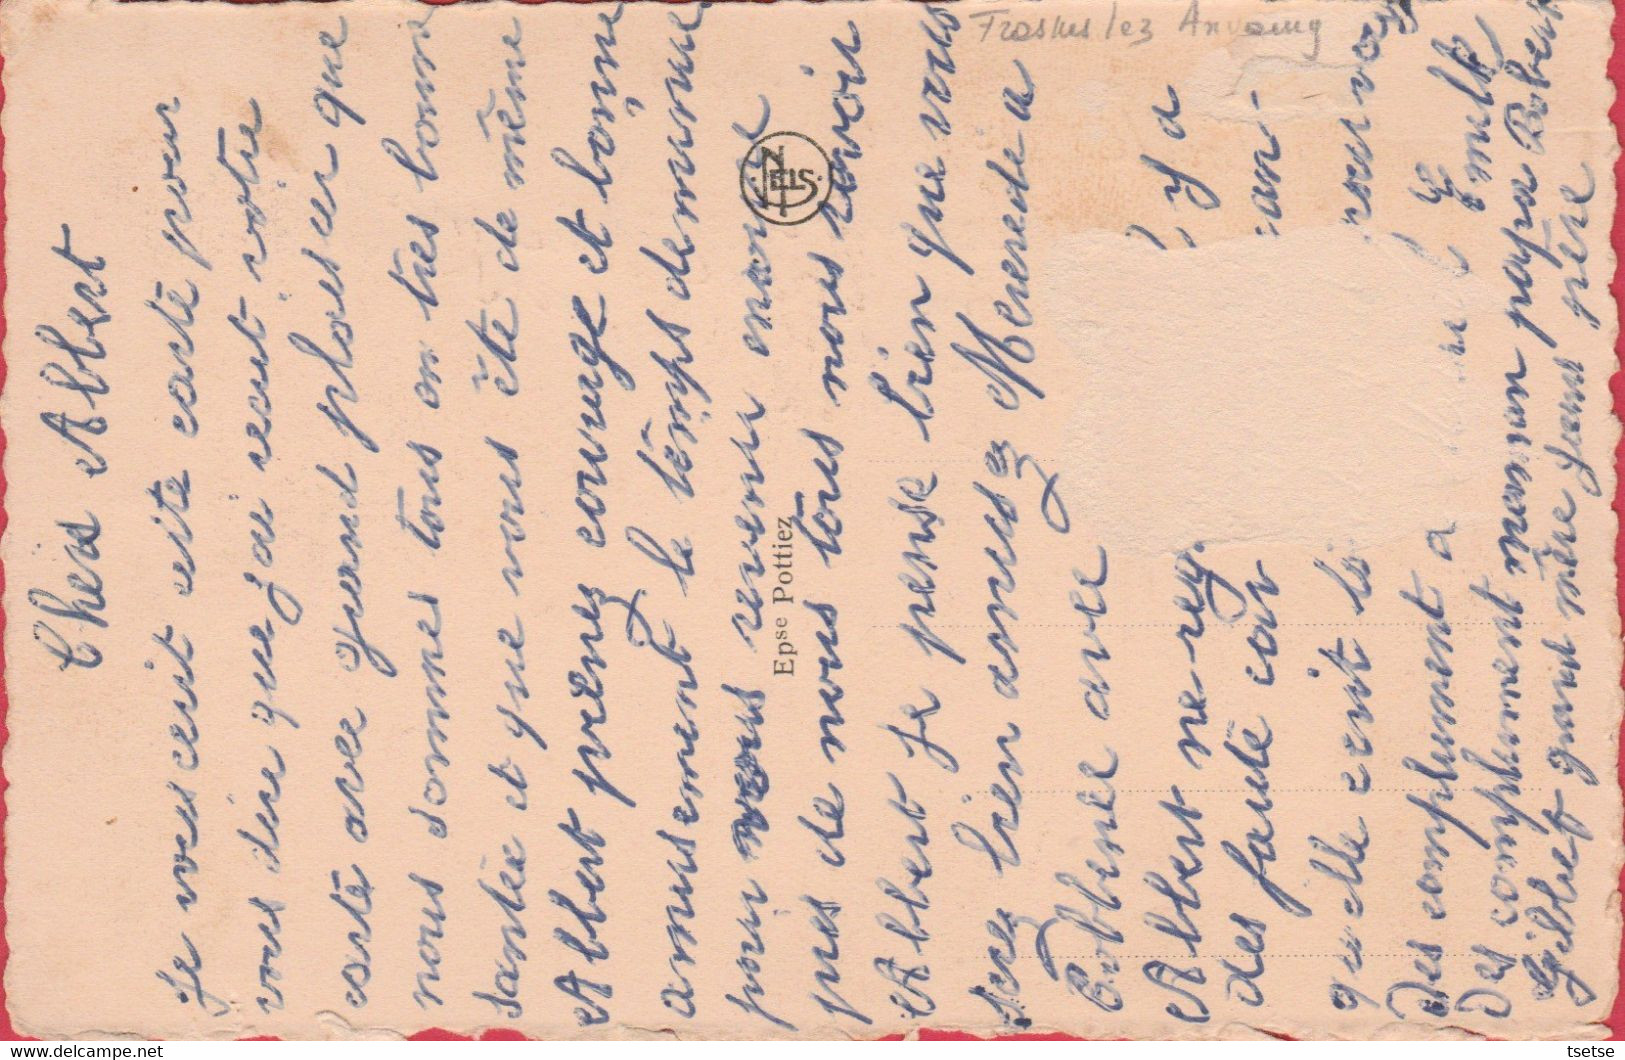 Frasnes lez Anvaing
Chere Albert
Je vous ecrit cette carte pour
vous dire que jai recut votre
carte avec grand plaiser que
nous sommes tous en tres bonne
santée et que vous ete de même
Albert prenez courage et bonne
amusement le temps demunue
pour vous revenir
pres de nous tous nous revoir
Albert je pense bien que vous
serez bien amusez
Bobbine avec
Albert ne
des faute car y a
quelle ecrit
Des complument a
Des complument maman papa
Gilbert grand mère père
NELS
Epse Pottiez
tsetse